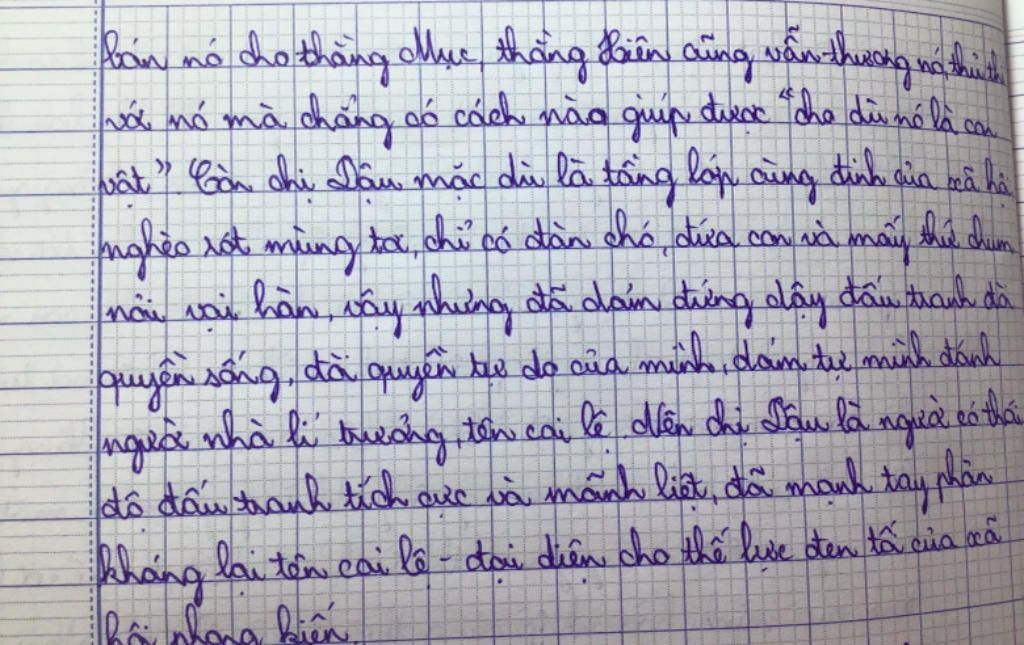 bán nó cho thằng Mục, thằng Xiên cũng vẫn thương nó, thủ th
với nó mà chẳng có cách nào giúp được "cho dù nó là con
vật" Còn chị Dậu mặc dù là tầng lớp cùng đinh của xã hộ
nghèo rớt mùng tơi, chỉ có đàn chó, đứa con và mấy thứ chum
nồi vại hàn, vậy nhưng đã dám đứng dậy đấu tranh đò
quyền sống, đòi quyền tự do của mình, dám tự mình đánh
người nhà lí trưởng, tên cai lệ. Nên chị Dậu là người có thái
độ đấu tranh tích cực và mãnh liệt, đã mạnh tay phản
kháng lại tên cai lệ - đại diện cho thế lực đen tố của xã
hội phong kiến.